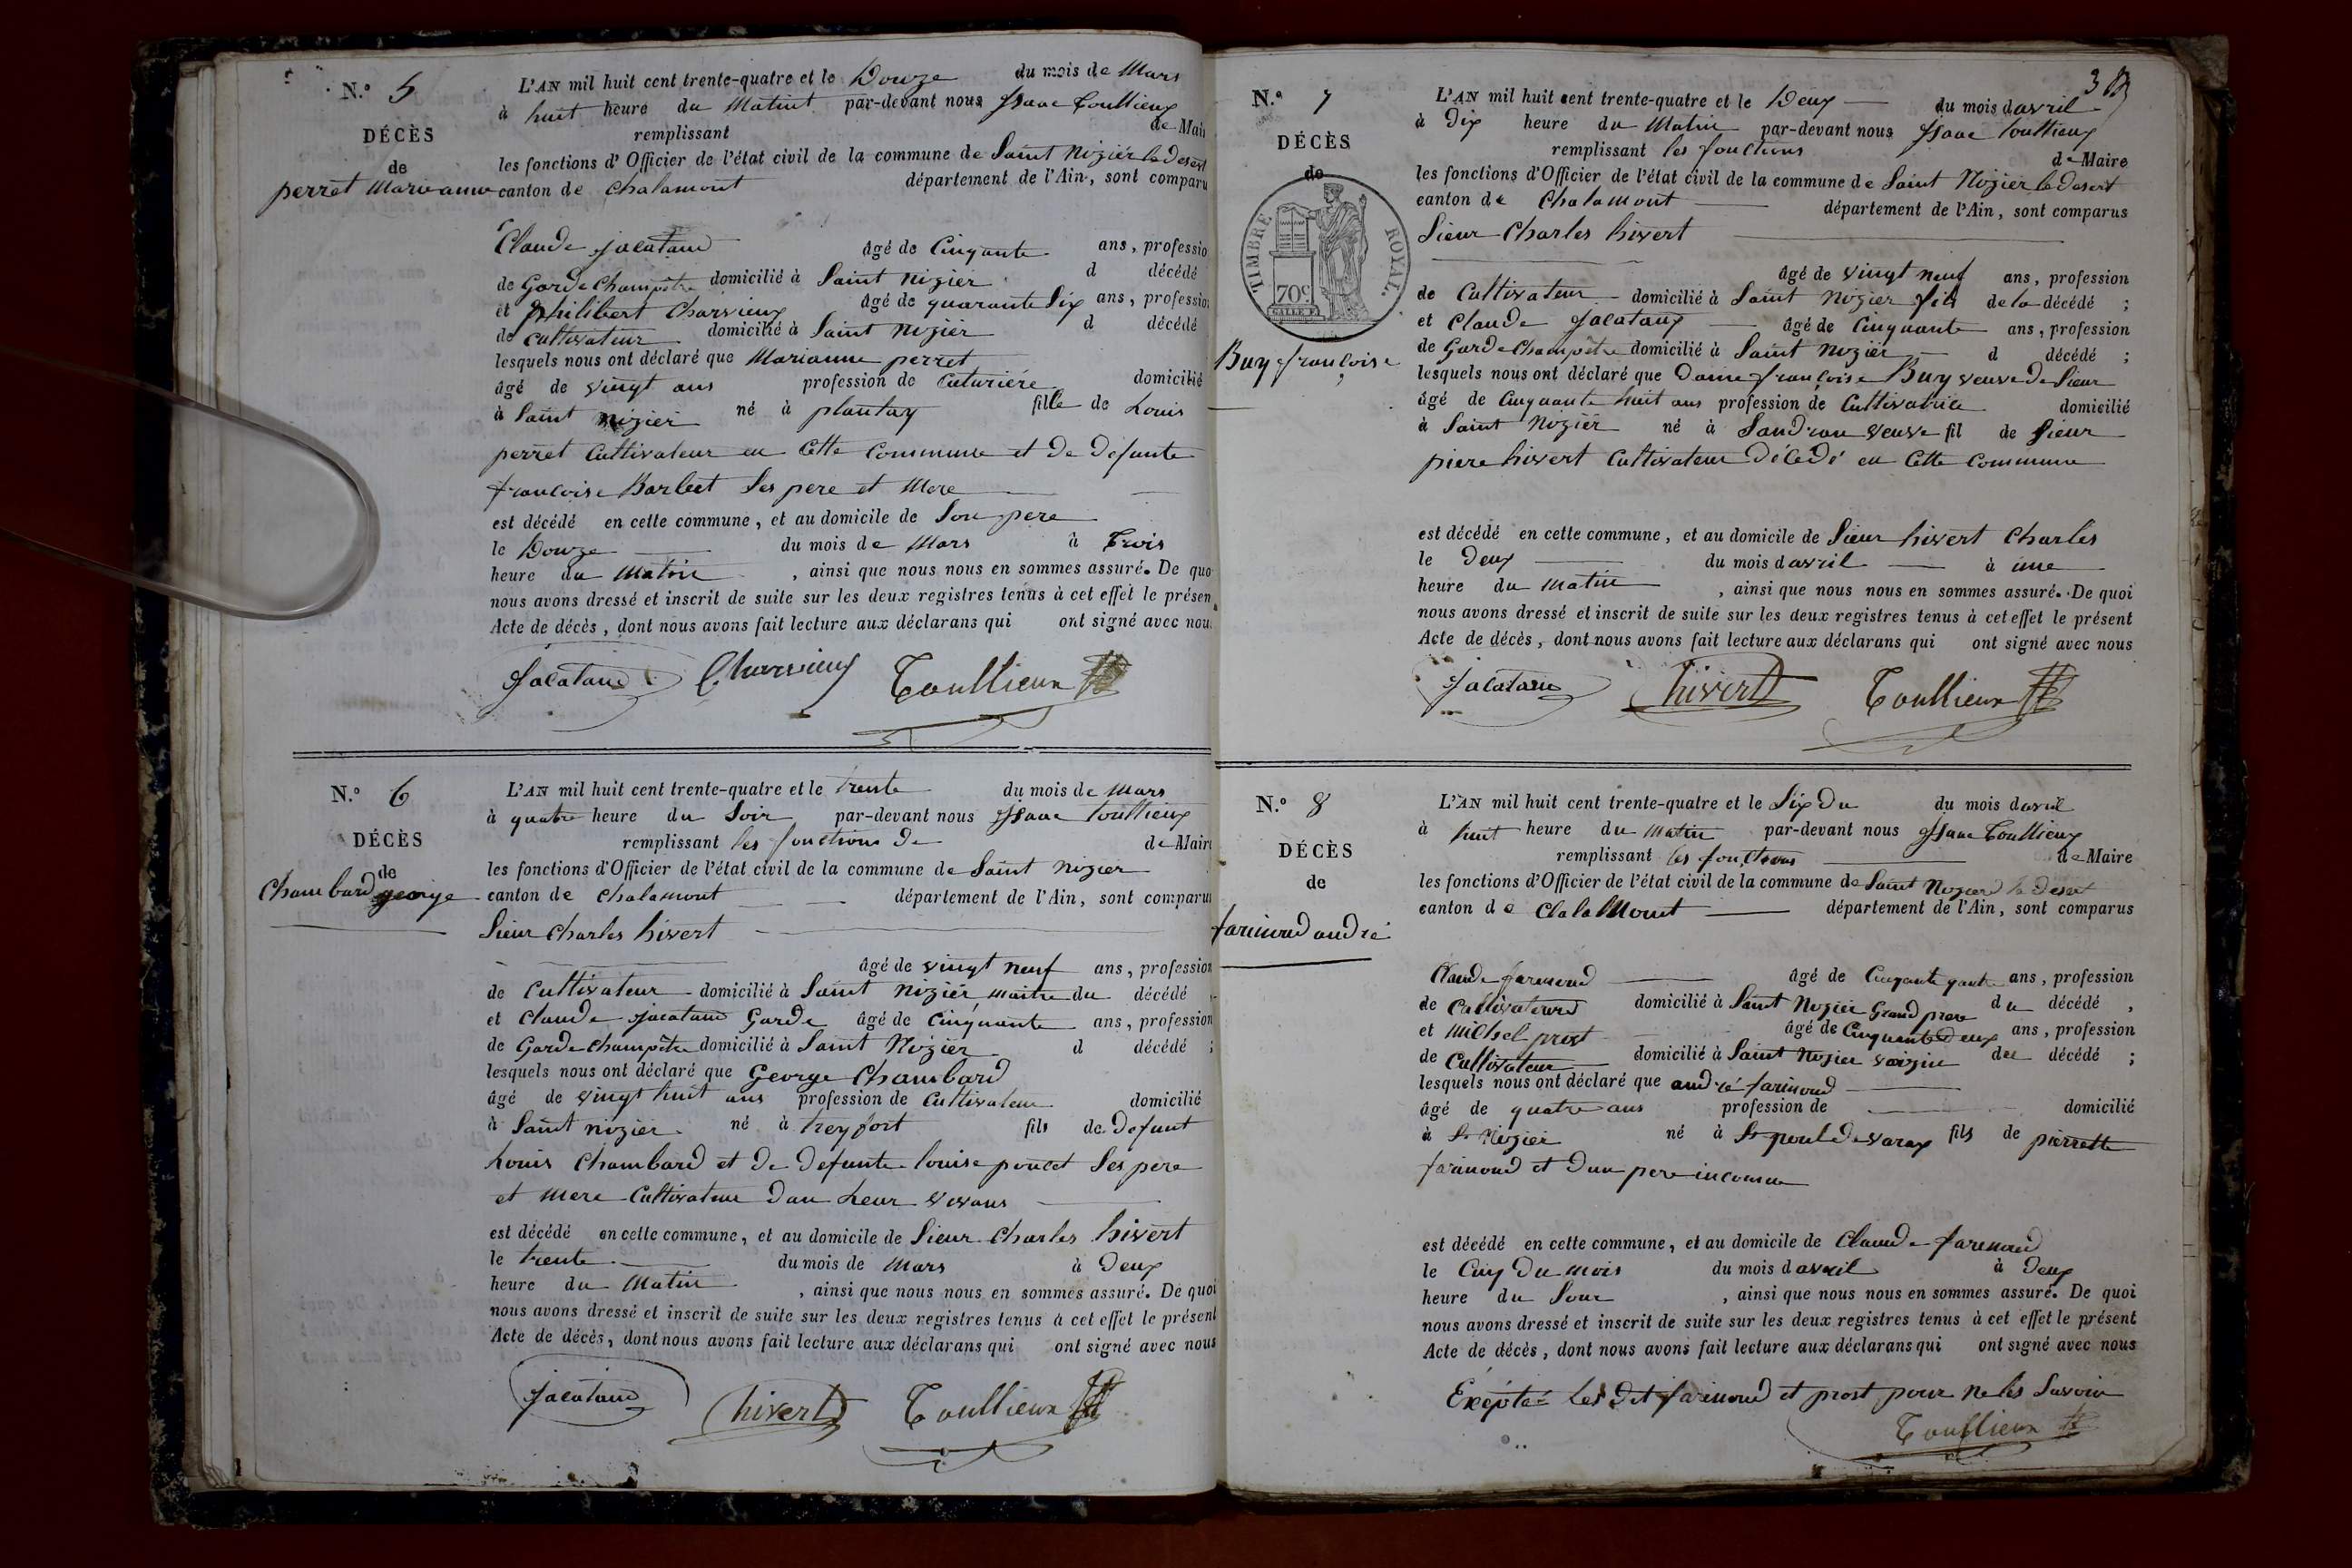 N.º 5
DÉCÈS
de
perret Marieanne
L'AN mil huit cent trente-quatre et le Douze du mois de Mars
à huit heure du Matint par-devant nous Isaac Toullieux
remplissant de Mair
les fonctions d'Officier de l'état civil de la commune de Saint Nizier le Desert
canton de Chalamont département de l'Ain, sont comparu
Claude Jacataud âgé de Cinqante ans, professio
de Garde Champêtre domicilié à Saint Nizier d décédé
et philibert Charvieux âgé de quarante Six ans, profession
de cultivateur domicilié à Saint Nizier d décédé
lesquels nous ont déclaré que Marianne perret
âgé de vingt ans profession de Cuturiére domicilié
à Saint Nizier né à plantay fille de Louis
perret Cultivateur en Cette Commune et De Défunte
françoise Barbet Ses pere et Mere
est décédé en cette commune, et au domicile de Son pere
le Douze du mois de Mars à Trois
heure du Matin , ainsi que nous nous en sommes assuré. De quo
nous avons dressé et inscrit de suite sur les deux registres tenus à cet effet le présen
Acte de décès, dont nous avons fait lecture aux déclarans qui ont signé avec nou
Jacataud Charvieux Toullieux
N.º 6
DÉCÈS
de
Chambard george
L'AN mil huit cent trente-quatre et le trente du mois de Mars
à quatre heure du Soir par-devant nous Isaac Toullieux
remplissant les fonctions De de Maire
les fonctions d'Officier de l'état civil de la commune de Saint Nizier
canton de Chalamont département de l'Ain, sont comparu
Sieur Charles hivert
âgé de vingt neuf ans, profession
de Cultivateur domicilié à Saint Nizier maitre du décédé
et Claude Jacataud Garde âgé de Cinquante ans, profession
de Garde Champêtre domicilié à Saint Nizier d décédé ;
lesquels nous ont déclaré que George Chambard
âgé de vingt huit ans profession de Cultivateur domicilié
à Saint Nizier né à treyfort fils de Defunt
Louis Chambard et De Defunte louise poncet Ses pere
et Mere Cultivateur Dan Leur Vivans
est décédé en cette commune, et au domicile de Sieur Charles hivert
le trente du mois de Mars à Deux
heure du Matin , ainsi que nous nous en sommes assuré. De quoi
nous avons dressé et inscrit de suite sur les deux registres tenus à cet effet le présent
Acte de décès, dont nous avons fait lecture aux déclarans qui ont signé avec nous
Jacataud hivert Toullieux
3
N.º 7
DÉCÈS
de
TIMBRE ROYAL.
70c
Buy françoise
L'AN mil huit cent trente-quatre et le Deux du mois d avril
à Dix heure du Matin par-devant nous Isaac Toullieux
remplissant les fonctions de Maire
les fonctions d'Officier de l'état civil de la commune de Saint Nizier le Desert
canton de Chalamont département de l'Ain, sont comparus
Sieur Charles hivert
âgé de vingt neuf ans, profession
de Cultivateur domicilié à Saint Nizier fils de la décédé ;
et Claude Jacataux âgé de Cinquante ans, profession
de Garde Champêtre domicilié à Saint Nizier d décédé ;
lesquels nous ont déclaré que Dame françoise Buy veuve de Sieur
âgé de Cinquante huit ans profession de Cultivatrice domicilié
à Saint Nizier né à Sandran veuve fil de Sieur
piere hivert Cultivateur Décedé en Cette Commune
est décédé en cette commune, et au domicile de Sieur hivert Charles
le Deux du mois d avril à une
heure du Matin , ainsi que nous nous en sommes assuré. De quoi
nous avons dressé et inscrit de suite sur les deux registres tenus à cet effet le présent
Acte de décès, dont nous avons fait lecture aux déclarans qui ont signé avec nous
Jacataud hivert Toullieux
N.º 8
DÉCÈS
de
farinoud andré
L'AN mil huit cent trente-quatre et le Six Du du mois d avril
à huit heure du Matin par-devant nous Isaac Toullieux
remplissant les fonctions de Maire
les fonctions d'Officier de l'état civil de la commune de Saint Nizier le Desert
canton de ClalaMont département de l'Ain, sont comparus
Claude farinoud âgé de ans, profession
de Cultivateur domicilié à Saint Nizier Grand pere du décédé ,
et Michel prost âgé de Cinquante Deux ans, profession
de Cultivateur domicilié à Saint Nizier voizin du décédé ;
lesquels nous ont déclaré que andré farinoud
âgé de quatre ans profession de domicilié
à St Nizier né à St poul De varax fils de pierrette
farinoud et Dun pere inconnu
est décédé en cette commune, et au domicile de Claude farinoud
le Cinq Du mois du mois d avril à Deux
heure du Soir , ainsi que nous nous en sommes assuré. De quoi
nous avons dressé et inscrit de suite sur les deux registres tenus à cet effet le présent
Acte de décès, dont nous avons fait lecture aux déclarans qui ont signé avec nous
Exépté Les Dit farinoud et prost pour ne les Savoir
Toullieux